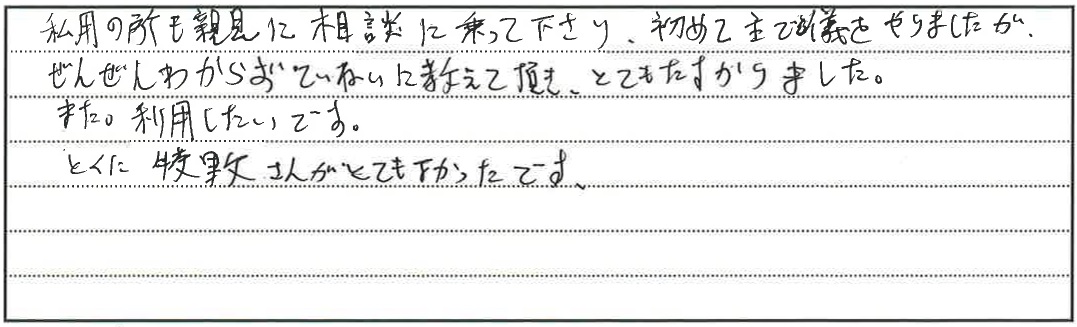 私用の所も親見に相談に乗って下さり、初めて主で儀をやりましたが、
ぜんぜんわからずていねいに教えて頂き、とてもたすかりました。
また。利用したいです。
とくに さんがとてもよかったです、